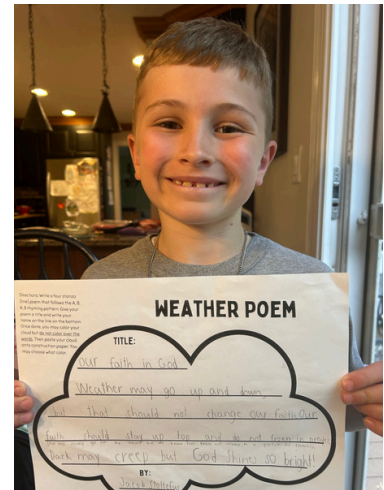 Directions: Write a four stanza
(line) poem that follows the A, B,
A, B rhyming pattern. Give your
poem a title and write your
name on the line on the bottom.
Once done, you may color your
cloud but do not color over the
words. Then paste your cloud
onto construction paper. You
may choose what color.
WEATHER POEM
TITLE:
Our faith in God
Weather may go up and down
but that should not change our faith Our
faith should stay up top and do not frown in
Dark may creep but God shines so bright!
BY:
Jacob